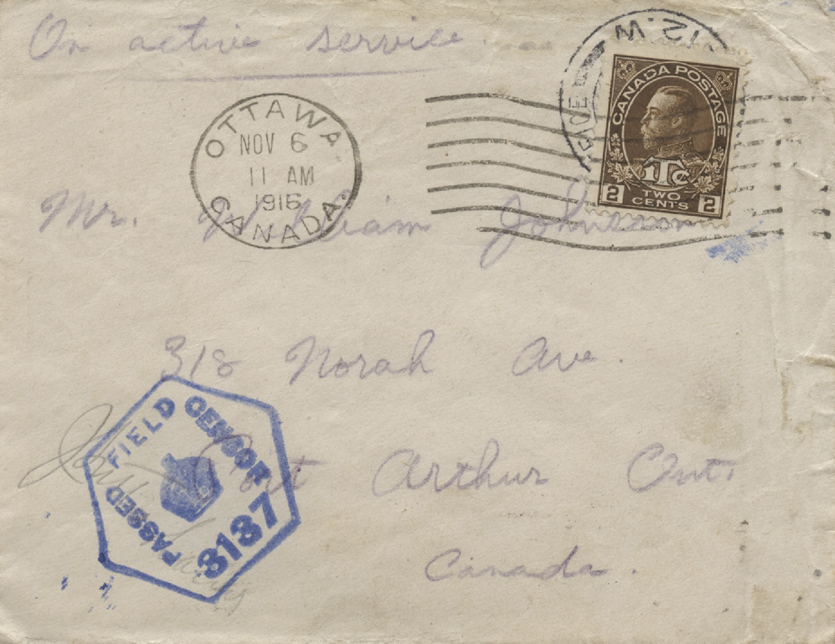 On active service.
12.W
PEACE
CANADA POSTAGE
1Tc
2 TWO CENTS 2
OTTAWA
NOV 6
11 AM
1916
CANADA.
Mr. William Johnson
318 Norah Ave.
Port Arthur Ont.
Canada.
PASSED FIELD CENSOR
3137